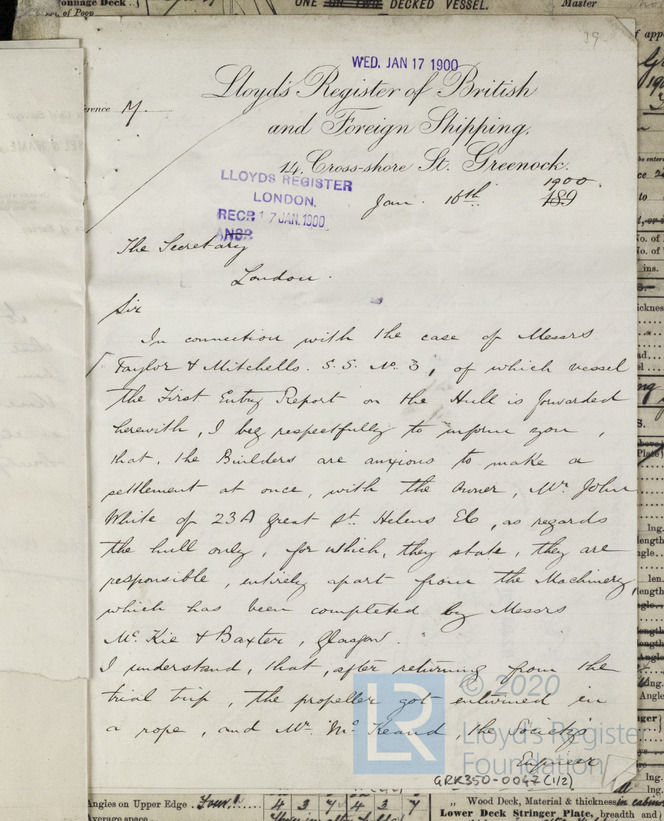 onnage Deck
ONE OR TWO DECKED VESSEL.
Master
of Poop
39
WED. JAN 17 1900
Lloyd's Register of British
and Foreign Shipping.
erence M.
14, Cross-shore St. Greenock.
LLOYDS REGISTER
LONDON.
RECD 17 JAN. 1900
ANSR
Jan. 16th 1900.
189
The Secretary
London.
Sir
In connection with the case of Messrs
Taylor & Mitchells. S.S. No. 3, of which vessel
the First Entry Report on the Hull is forwarded
herewith, I beg respectfully to inform you,
that, the Builders are anxious to make a
settlement at once, with the Owner, Mr. John
White of 23A Great St. Helens EC, as regards
the hull only, for which, they state, they are
responsible, entirely apart from the Machinery,
which has been completed by Messrs
Mc. Kie & Baxter, Glasgow.
I understand, that, after returning from the
trial trip, the propeller got entwined in
a rope, and Mr. McKeand, the Society's
Engineer
© 2020
Lloyd's Register
Foundation
LR
GRK350-0047 (1/2)
Angles on Upper Edge
4 3 7 4 3 7
Average space
" Wood Deck, Material & thickness
Lower Deck Stringer Plate, breadth and